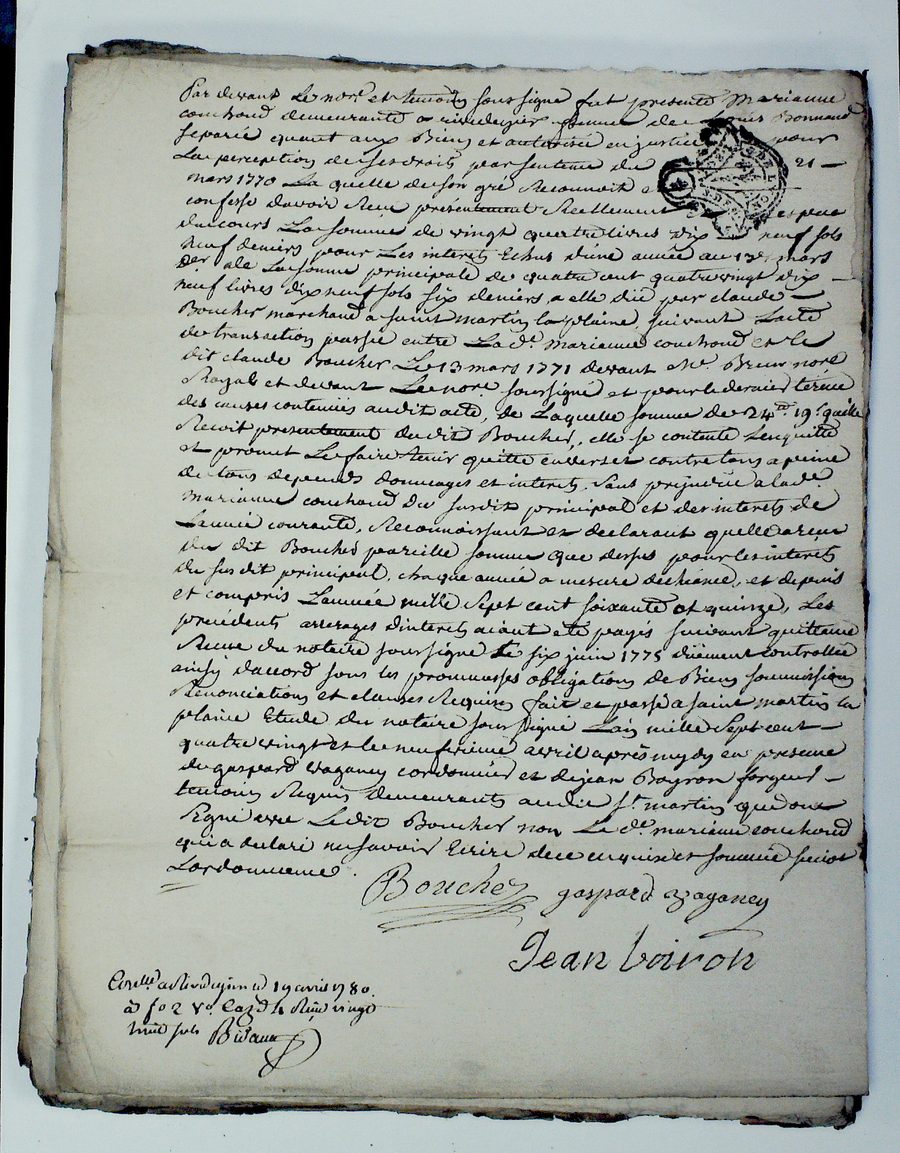 Par devant Le nore. et temoins soussigné fut presente Marianne
couchoud demeurante a rivedegier femme de Bonnand
separée quant aux Biens et autorisée en justice pour
La perception de ses droits par sentence du 21
mars 1770 La quelle de son gré Reconnoit et
confesse d'avoir Reçu presentement Reellement espece
du cours La somme de vingt quatre livres dix neuf sols
neuf deniers pour Les interets Echus d'une année au 13 mars
der. de La somme principale de quatre cent quatre vingt dix
neuf livres dix neuf sols six deniers a elle due par claude
Boucher marchand a saint martin la plaine, suivant L'acte
de transaction passée entre La de. Marianne couchoud et le
dit claude Boucher Le 13 mars 1771 devant Me. nore
Royal et devant Le nore. soussigné et pour le dernier terme
des causes contenües audit acte, de Laquelle somme de 24# 19s. qu'elle
Recoit presentement du dit Boucher, elle se contente L'en quitte
et promet Le faire tenir quitte envers et contre tous a peine
de tous depends dommages et interets, sans prejudice a lade.
Marianne couchoud du susdit principal et des interets de
L'année courante, Reconnoissant et declarant qu'elle a reçu
du dit Boucher pareille somme que dessus pour les interets
du susdit principal, chaque année a mesure d'echéance, et depuis
et compris L'année mille sept cent soixante et quinze, Les
précédents arrerages d'interets aiant eté payés suivant quittance
Reçue du notaire soussigné Le six juin 1775 düement controllée
ainsy d'accord sous les promesses obligations de Biens soumissions
Renonciations et clauses Requises fait et passé a saint martin la
plaine Etude du notaire soussigné L'an mille sept cent
quatre vingt et le neufvieme avril après mydy en presence
de gaspard vaganey cordonnier et de jean Boyron forgeur
temoins Requis demeurants audit st. martin qui ont
signé avec Ledit Boucher non La de. marianne couchoud
qui a declaré ne savoir Ecrire de ce enquise et sommée suivant
L'ordonnance.
Boucher gaspard vaganey
Jean boiron
Conllé. a Rivedegier ce 19 avril 1780.
fo 2 Vo. Reçu vingt
huit sols